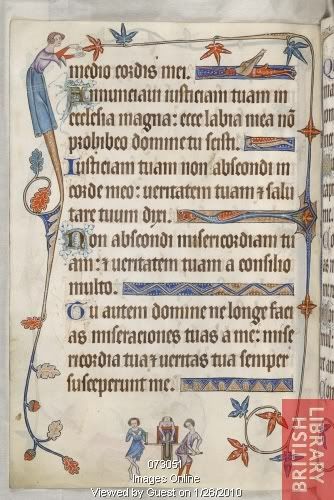 medio cordis mei.
Annunciavi iusticiam tuam in
ecclesia magna: ecce labia mea nō
prohibeo domine tu scisti.
Iusticiam tuam non abscondi in
corde meo: veritatem tuam ⁊ salu
tare tuum dixi.
Non abscondi misericordiam tu
am: ⁊ veritatem tuam a consilio
multo.
Tu autem domine ne longe faci
as miseraciones tuas a me: mise
ricordia tua ⁊ veritas tua semper
susceperunt me.
073051
Images Online
Viewed by Guest on 1/26/2010
BRITISH
LIBRARY